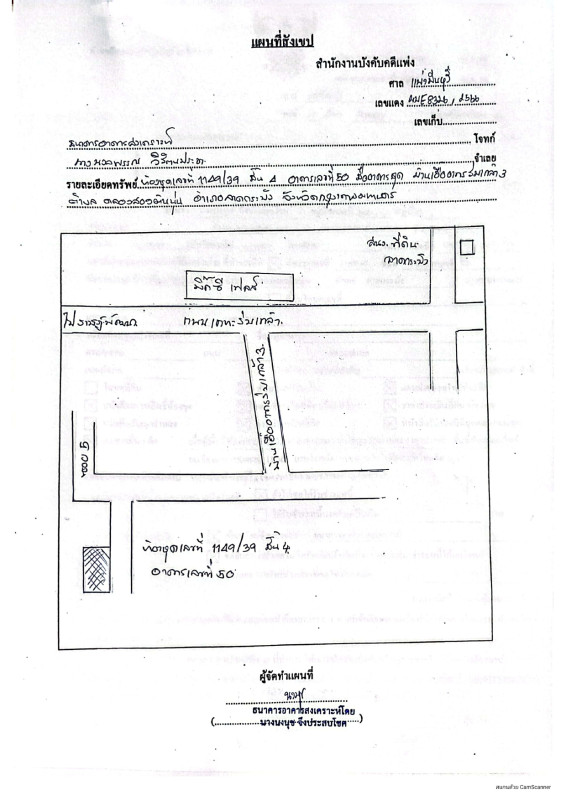 แผนที่สังเขป
สำนักงานบังคับคดีแพ่ง
ศาล แพ่งมีนบุรี
เลขแดง ผบE8226 / 2566
เลขเก็บ
ธนาคารอาคารสงเคราะห์ โจทก์
นางนวลพรรณ จำเลย
รายละเอียดทรัพย์ ห้องชุดเลขที่ 1149/39 ชั้น 4 อาคารเลขที่ 50 ชื่ออาคารชุด บ้านเอื้ออาทรร่มเกล้า 3
ตำบล คลองสองต้นนุ่น อำเภอลาดกระบัง จังหวัดกรุงเทพมหานคร
สนง. ที่ดิน
ลาดกระบัง
มิ๊กซ์ เฟลส์
ไปราษฎร์พัฒนา ถนนเคหะร่มเกล้า
บ้านเอื้ออาทรร่มเกล้า 3
ซอย 5
ห้องชุดเลขที่ 1149/39 ชั้น 4
อาคารเลขที่ 50
ผู้จัดทำแผนที่
ธนาคารอาคารสงเคราะห์โดย
(นางนงนุช จึงประสบโชค)
สแกนด้วย CamScanner